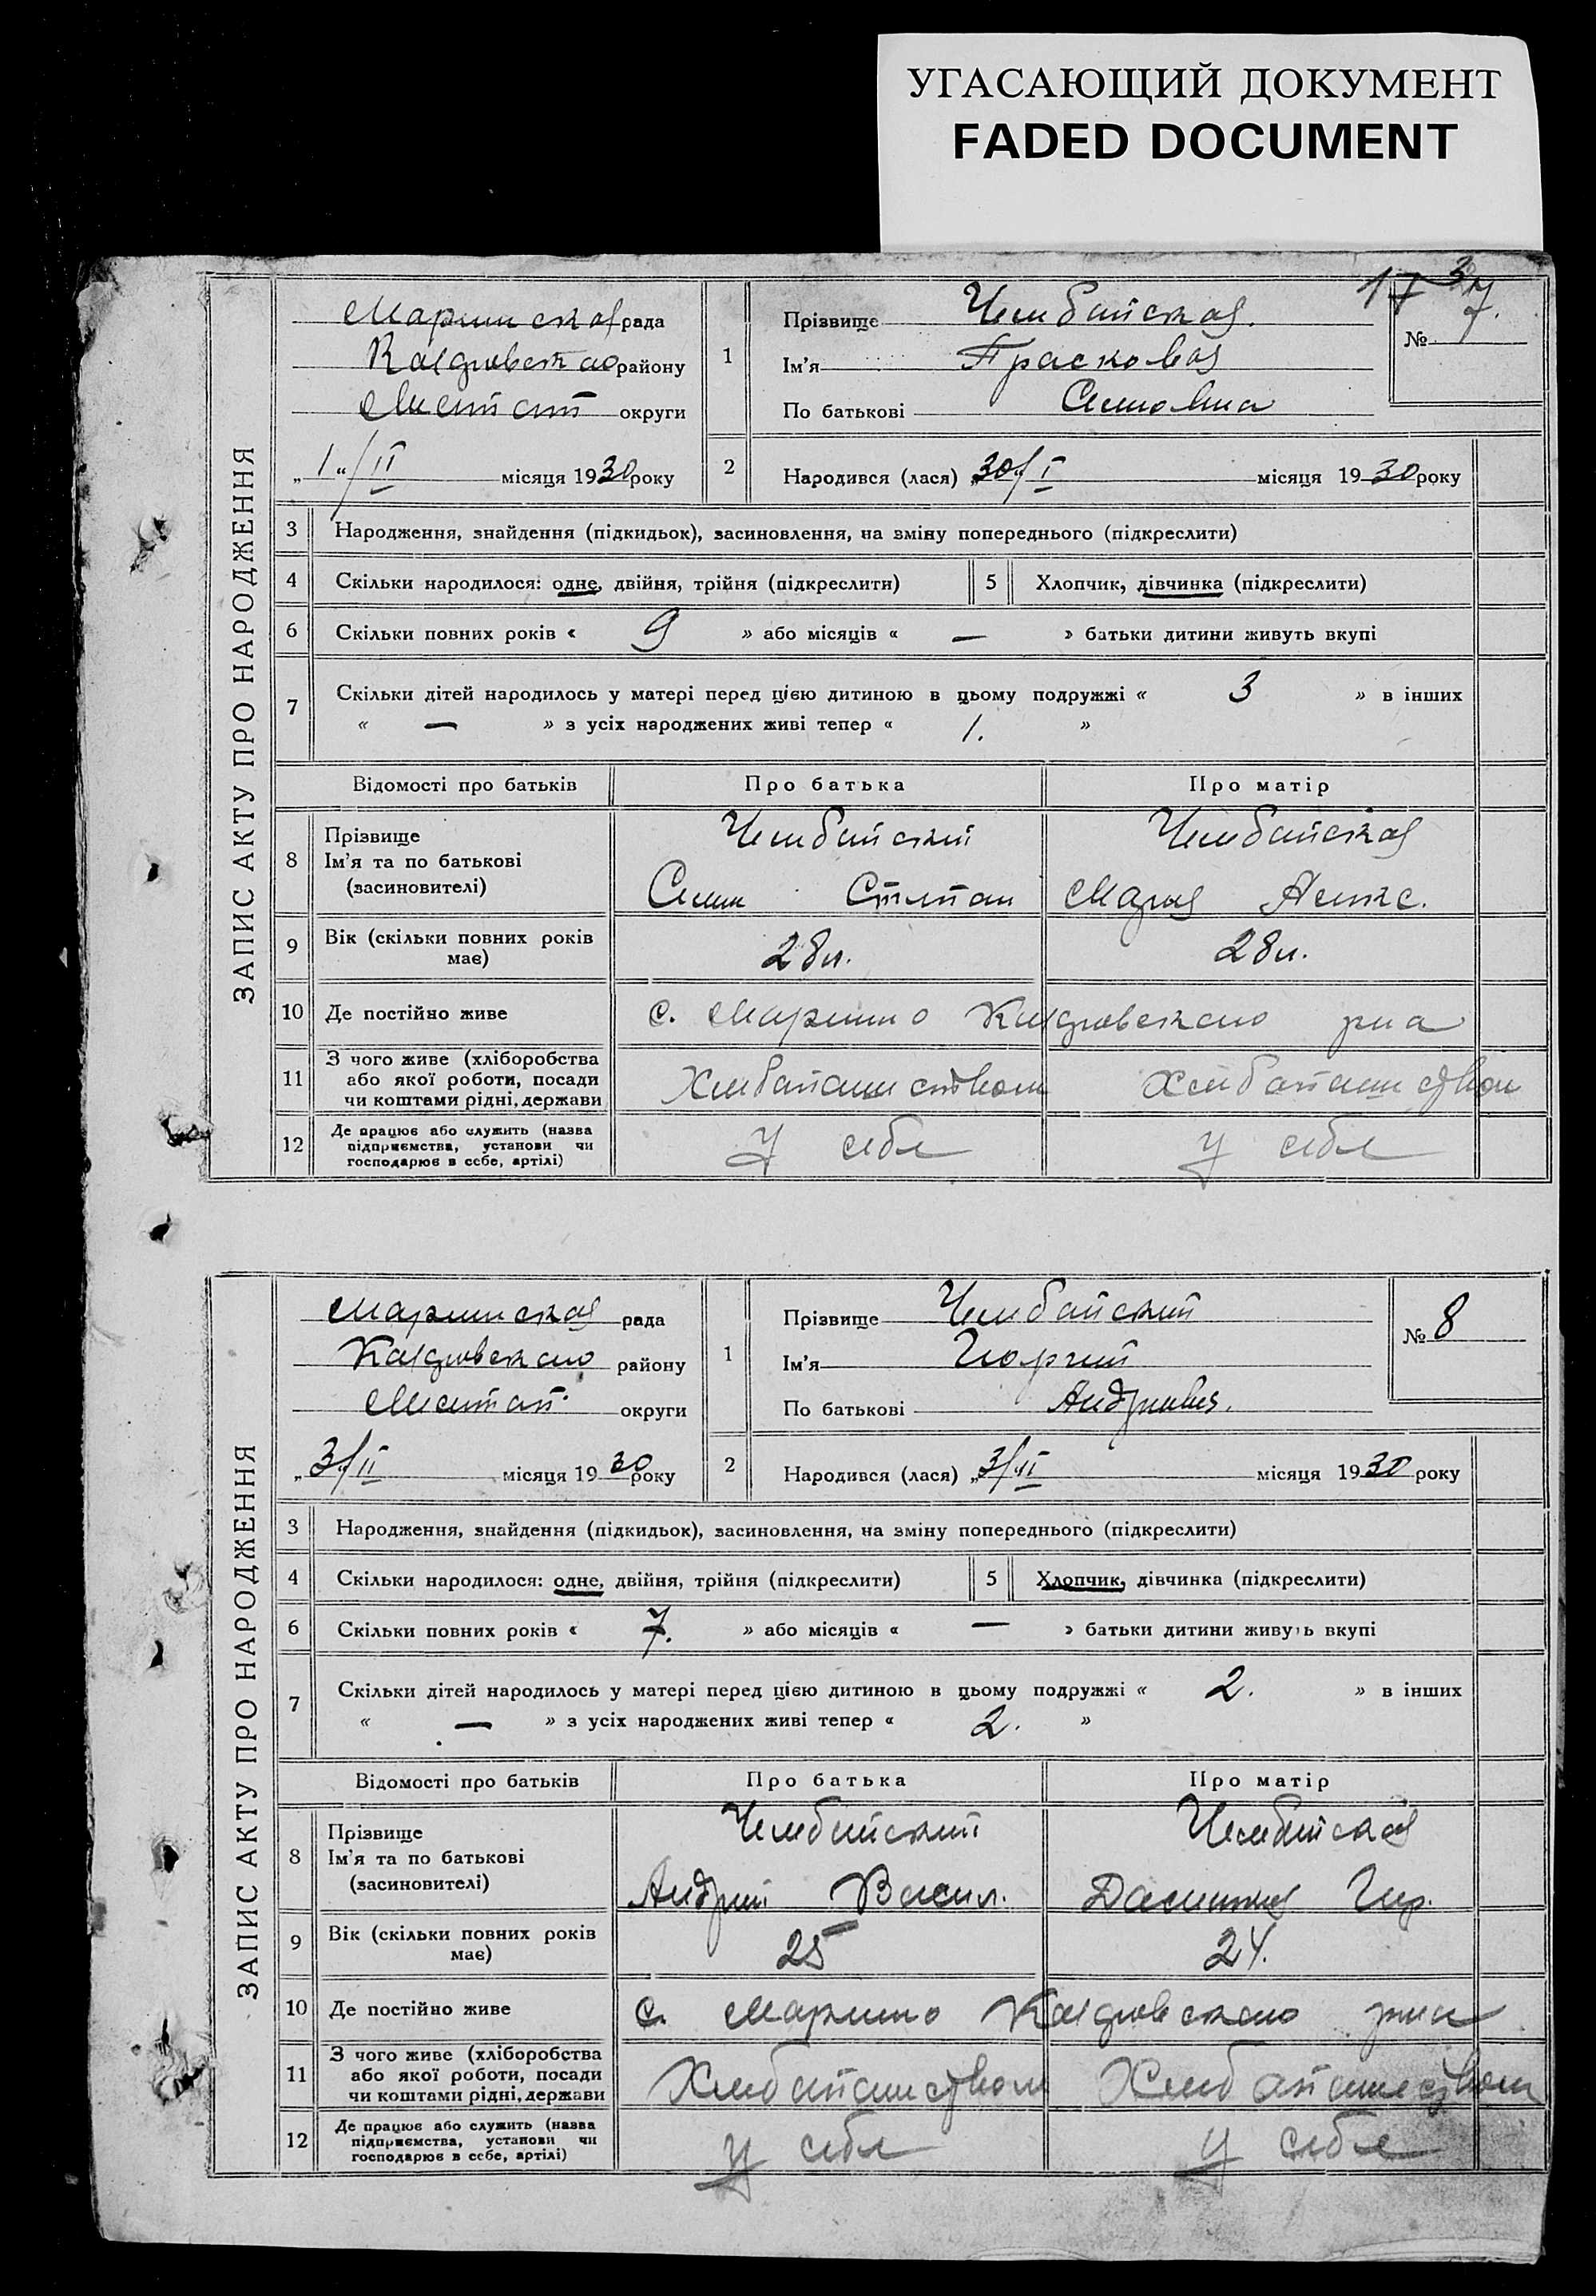 УГАСАЮЩИЙ ДОКУМЕНТ
FADED DOCUMENT
ЗАПИС АКТУ ПРО НАРОДЖЕННЯ
рада
району
округи
„1“/II місяця 1930 року
1
Прізвище
Ім'я Прасковья
По батькові
№ 7.
2
Народився (лася) „30“/I місяця 1930 року
3 Народження, знайдення (підкидьок), засиновлення, на зміну попереднього (підкреслити)
4 Скільки народилося: одне, двійня, трійня (підкреслити) 5 Хлопчик, дівчинка (підкреслити)
6 Скільки повних років « 9 » або місяців « — » батьки дитини живуть вкупі
7 Скільки дітей народилось у матері перед цією дитиною в цьому подружжі « 3 » в інших
« — » з усіх народжених живі тепер « 1. »
Відомості про батьків Про батька Про матір
8 Прізвище
Ім'я та по батькові
(засиновителі)
Семен Степан Мария Алекс.
9 Вік (скільки повних років має) 28л. 28л.
10 Де постійно живе с.
11 З чого живе (хліборобства або якої роботи, посади чи коштами рідні, держави
Хлебопашеством Хлебопашеством
12 Де працює або служить (назва підприємства, установи чи господарює в себе, артілі)
У себя У себя
ЗАПИС АКТУ ПРО НАРОДЖЕННЯ
рада
району
округи
„3“/II місяця 1930 року
1
Прізвище
Ім'я Георгий
По батькові
№ 8
2
Народився (лася) „3“/II місяця 1930 року
3 Народження, знайдення (підкидьок), засиновлення, на зміну попереднього (підкреслити)
4 Скільки народилося: одне, двійня, трійня (підкреслити) 5 Хлопчик, дівчинка (підкреслити)
6 Скільки повних років « 7. » або місяців « — » батьки дитини живуть вкупі
7 Скільки дітей народилось у матері перед цією дитиною в цьому подружжі « 2. » в інших
« — » з усіх народжених живі тепер « 2. »
Відомості про батьків Про батька Про матір
8 Прізвище
Ім'я та по батькові
(засиновителі)
Андрей Васил.
9 Вік (скільки повних років має) 25 24.
10 Де постійно живе с.
11 З чого живе (хліборобства або якої роботи, посади чи коштами рідні, держави
Хлебопашеством Хлебопашеством
12 Де працює або служить (назва підприємства, установи чи господарює в себе, артілі)
У себя У себя